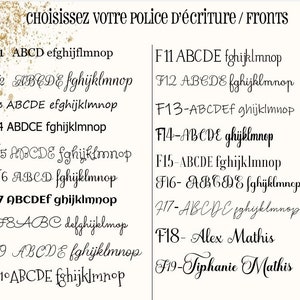 CHOISISSEZ VOTRE POLICE D'ÉCRITURE / FRONTS
1 ABCD efghijflmnop
2 ABCDE fghijklmnop
3 ABCDE fghijklmnop
4 ABDCE fghijklmnop
5 ABCDE fghijklmnop
6 ABCD fghijklmnop
7 ABCDEF ghijklmnop
F8 ABC defghijklmnop
9 ABCDE fghijklmnop
10 ABCDE fghijklmnop
F11 ABCDE fghijklmnop
F12 ABCDE fghijklmnop
F13-ABCDEF ghijklmnop
F14-ABCDE ghijklmnop
F15- ABCDE fghijklmnop
F16- ABCDE fghijklmnop
F17- ABCDC fghijklmnop
F18- Alex Mathis
F19-Tiphanie Mathis